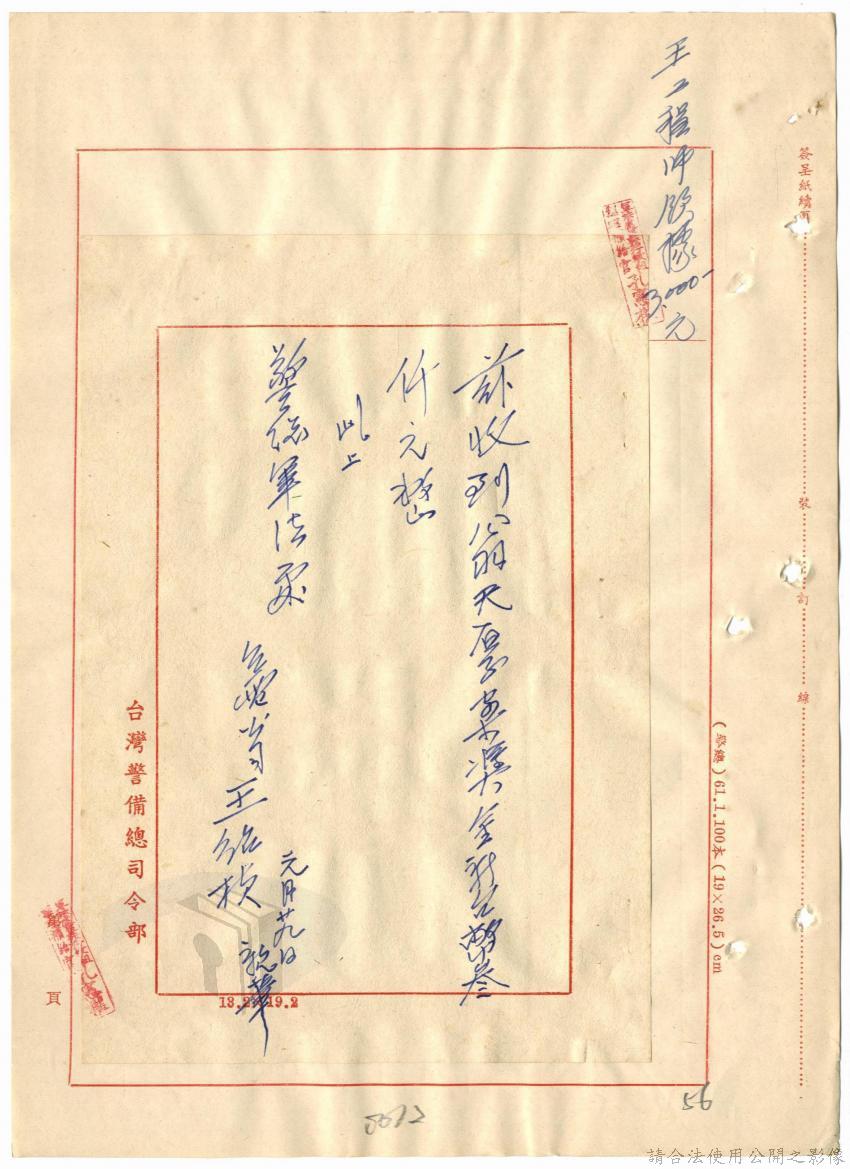 簽呈紙續頁
裝
訂
線
王工程師收據
3,000-元
(警總)61.1.100本(19×26.5)cm
茲收到翁天厚案獎金新台幣叁
仟元整
此上
警總軍法處
台電公司王紹楨
元月廿九日
台灣警備總司令部
頁
13.2×19.2
56
請合法使用公開之影像